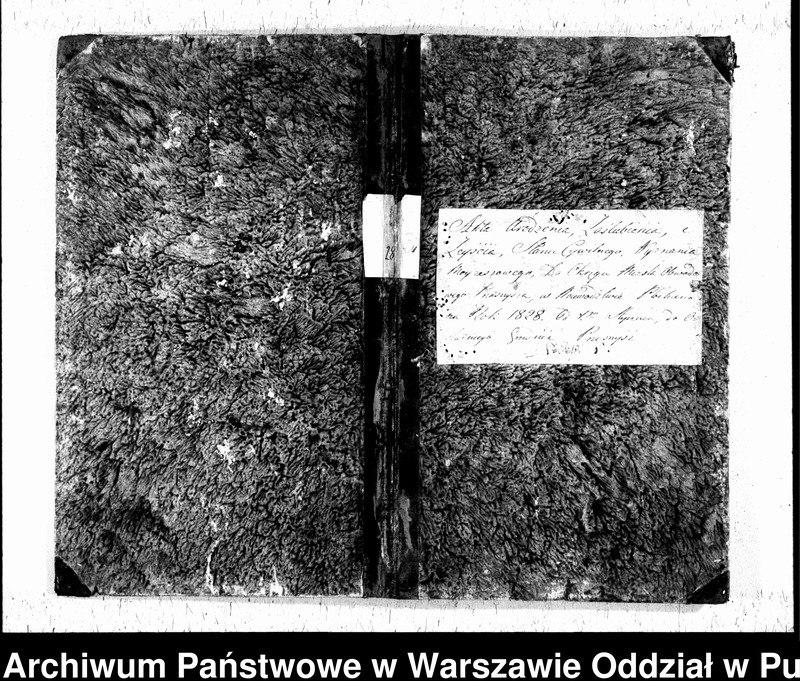 Akta Urodzenia, Zaślubienia, i
Zeyścia, Stanu Cywilnego, Wyznania
Moyżeszowego, Do Okręgu Miasta Obwodo
wego Przasnysza, w Woiewództwie Płockim
na Rok 1828. Od 1go Stycznia, do
Gminie Przasnysz
28
Archiwum Państwowe w Warszawie Oddział w Pu